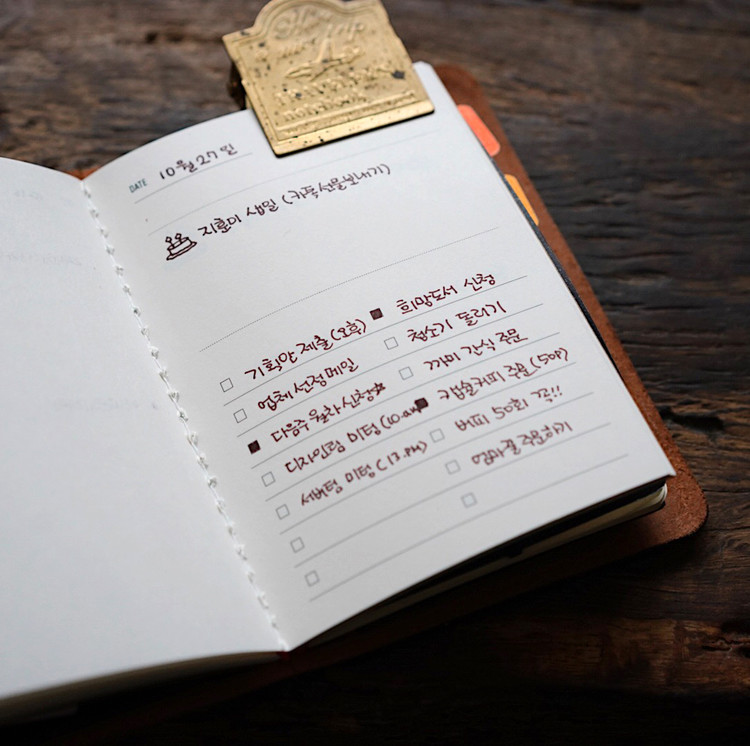 DATE 10월 27일
지훈이 생일 (카톡선물보내기)
기획안 제출(오후)
업체 선정 메일
다음주 월차 신청
디자인팀 미팅 (10:am)
서버팀 미팅 (1:PM)
희망도서 신청
청소기 돌리기
까미 간식 주문
캡슐커피 주문 (50p)
버피 50회 꼭!!
엄마꺼 주문하기